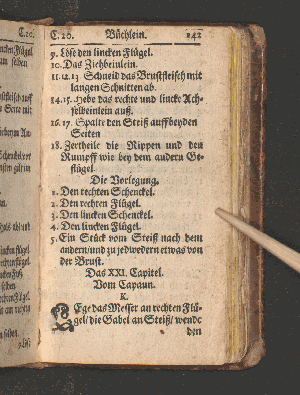 C. 20. Büchlein. 142
9. Löse den lincken Flügel.
10. Das Ziehbeinlein.
11. 12. 13 Schneid das Brustfleisch mit
langen Schnitten ab.
14. 15. Hebe das rechte und lincke Ach-
selbeinlein auß.
16. 17. Spalte den Steiß auff beyden
Seiten
18. Zertheile die Rippen und den
Rumpff wie bey dem andern Ge-
flügel.
Die Vorlegung.
1. Den rechten Schenckel.
2. Den rechten Flügel.
3. Den lincken Schenckel.
4. Den lincken Flügel.
5. Ein Stück vom Steiß nach dem
andern/ und zu jedwedern etwas von
der Brust.
Das XXI. Capitel.
Vom Capaun.
K.
LEge das Messer an rechten Flü-
gel/ die Gabel an Steiß/ wende
den